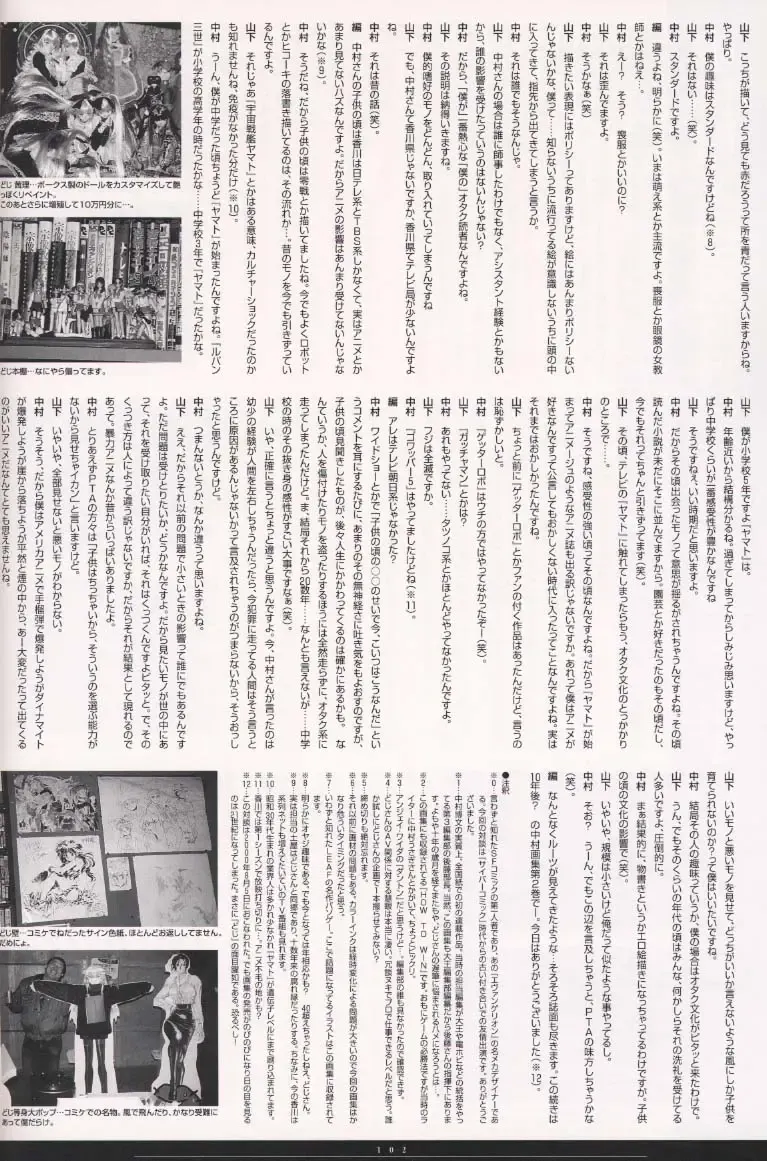 山下　こっちが描いて、どう見ても赤だろうって所を青だって言う人いますからね。
やっぱり。
中村　僕の趣味はスタンダードなんですけどね（※8）。
山下　それはない……（笑）。
中村　スタンダードですよ。
編　違うよね、明らかに（笑）。いまは萌え系とか主流ですよ。喪服とか眼鏡の女教
師とかはねえ…。
中村　えー？　そう？　喪服とかいいのに？
山下　それは歪んでますよ。
中村　そうかなぁ（笑）
山下　描きたい表現にはポリシーってありますけど、絵にはあんまりポリシーない
んじゃないかな、僕って……知らないうちに流行ってる絵が意識しないうちに頭の中
に入ってきて、指先から出てきてしまうと言うか。
中村　それは誰でもそうなんじゃ。
山下　中村さんの場合は誰に師事したわけでもなく、アシスタント経験とかもない
から、誰の影響を受けたっていうのはないんじゃない？
中村　だから、「僕が」一番熱心な「僕の」オタク読者なんですよね。
山下　その説明は納得いきますね。
中村　僕的嗜好のモノをどんどん、取り入れていってしまうんですね
山下　でも、中村さんて香川県じゃないですか、香川県てテレビ局が少ないんですよ
ね。
中村　それは昔の話（笑）。
編　中村さんの子供の頃は香川は日テレ系とTBS系しかなくて、実はアニメとか
あまり見てないハズなんですよ。だからアニメの影響はあんまり受けてないんじゃな
いかな（※9）。
中村　そうだね、だから子供の頃は零戦とか描いてましたね。今でもよくロボット
とかヒコーキの落書き描いてるのは、その流れか…。昔のモノを今でも引きずってい
るんですよ。
山下　それじゃあ『宇宙戦艦ヤマト』とかはある意味、カルチャーショックだったのか
も知れませんね、免疫がなかった分だけ（※10）。
中村　うーん、僕が中学だった頃ちょうど『ヤマト』が始まったんですよね。『ルパン
三世』が小学校の高学年の時だったかな……中学校3年で『ヤマト』だったかな。
どじ賞理…ボークス製のドールをカスタマイズして艶
っぽくリペイント。
このあとさらに増殖して10万円分に…。
どじ本棚…なにやら偏ってます。
山下　僕が小学校5年ですよ『ヤマト』は。
中村　年齢近いから結構分かるね。過ぎてしまってからしみじみ思いますけど、やっ
ぱり中学校くらいが一番感受性が豊かなんですね
山下　そうですねぇ、いい時期だと思いますよ。
中村　だからその頃出会ったモノって意思が揺るがされちゃうんですよね。その頃
読んだ小説が未だにそこに並んでますから。園芸とか好きだったのもその頃だし、
今でもそれってちゃんと引きずってます（笑）。
山下　その頃、テレビの『ヤマト』に触れてしまったらもう、オタク文化のとっかかり
のところで……。
中村　そうですね、感受性の強い頃ってその頃なんですよね。だから『ヤマト』が始
まってアニメージュのようなアニメ誌も出る訳じゃないですか。あれって僕はアニメが
好きなんですって公言してもおかしくない時代に入ったってことなんですよね。実は
それまではおかしかったんですね。
山下　ちょっと前に『ゲッターロボ』とかファンの付く作品はあったんだけど、言うの
は恥ずかしいと。
中村　『ゲッターロボ』はウチの方ではやってなかったぞー（笑）。
山下　『ガッチャマン』とかは？
中村　あれもやってない……タツノコ系とかほとんどやってなかったんですよ。
山下　フジは全滅ですか。
中村　『ゴワッパー5』はやってましたけどね（※11）。
編　アレはテレビ朝日系じゃなかった？
中村　ワイドショーとかで「子供の頃の○○のせいで今、こいつはこうなんだ」とい
うコメントを耳にするたびに、あまりのその無神経さに吐き気をもよおすのですが、
子供の頃見聞きしたものが、後々人生にかかわってくるのは確かにあるかも。な
んていうか、人を傷付けたりモノを盗ったりするほうには全然走らずに、オタク系に
走ってしまったんだけど。ま、結局それから20数年……なんとも言えないが……中学
校の時のその抜き身の感性がすごい大事ですなぁ（笑）。
山下　いや、正確に言うとちょっと違うと思うんですよ。今、中村さんが言ったのは
幼少の経験が人間を左右しちゃうんだったら、今犯罪に走ってる人間はそう言うと
ころに原因があるんじゃないかって言及されちゃうのがつまらないから、そうおっし
ゃったと思うんですけど。
中村　つまんないとうか、なんか違うって思いますよね。
山下　ええ。だからそれ以前の問題で小さいときの影響って誰にでもあるんです
よ。ただ問題は受けとりたいか、どうかなんですよ。だから見たいモノが世の中にあ
って、それを受け取りたい自分がいれば、それはくっつくんですよピタッと。で、その
くっつき方は人によって違う訳じゃないですか。だからそれが結果として現れるので
あって。暴力アニメなんか昔からいっぱいありましたよ。
中村　とりあえずPTAの方々は「子供はちっちゃいから、そういうのを選ぶ能力が
ないから見せちゃイカン」と言いますけど。
山下　いやいや、全部見せないと悪いモノがわからない。
中村　そうそう。だから僕はアメリカアニメで手榴弾で爆発しようがダイナマイト
が爆発しようが崖から落ちようが平然と煙の中から、あー大変だったって出てくる
のがいいアニメだなんてとても思えませんね。
山下　いいモノと悪いモノを見せて、どっちがいいか言えないような風にしか子供を
育てられないのか?って僕はいいたいですね。
中村　結局その人の趣味っていうか、僕の場合はオタク文化がピタッと来たわけで。
山下　うん、でもそのくらいの年代の頃はみんな、何かしらそれの洗礼を受けてる
人多いですよ、圧倒的に。
中村　まぁ結果的に、物書きというかエロ絵描きになっちゃってるわけですが。子供
の頃の文化の影響で（笑）。
山下　いやいや、規模は小さいけど俺だって似たような事やってるし。
中村　そお？　うーん、でもこの辺を言及しちゃうと、PTAの味方しちゃうかな
（笑）。
編　なんとなくループが見えてきたような…そろそろ誌面も尽きます。この続きは
10年後？　の中村画集第2巻でー。今日はありがとうございました（※12）。
●注釈
※0…言わずと知れたSFコミックの第一人者であり、あの『エヴァンゲリオン』の名メカデザイナーであ
る。今回の対談は『サイバーコミック』時代からの古い付き合いでの友情出演です。ありがとうご
ざいました。
※3…アンジェイ・ワイダの『ダントン』だと思うけど…。編集部の誰も見なかったので確認できず。
※5…締め切りも絶対忘れます。
※7…いわずと知れたLEAFの名作パソゲー。ここで話題になってるイラストはこの画集に収録されて
ます。
※8…明らかにオヤジ趣味である。でも今となっては年相応かも？　40超えちゃったしねえ、どじさん。
どじ壁…コミケでねだったサイン色紙、ほとんどお返ししてません。
だめにょ。
どじ等身大ポップ…コミケでの名物。風で飛んだり、かなり受難に
あって傷だらけ。
102